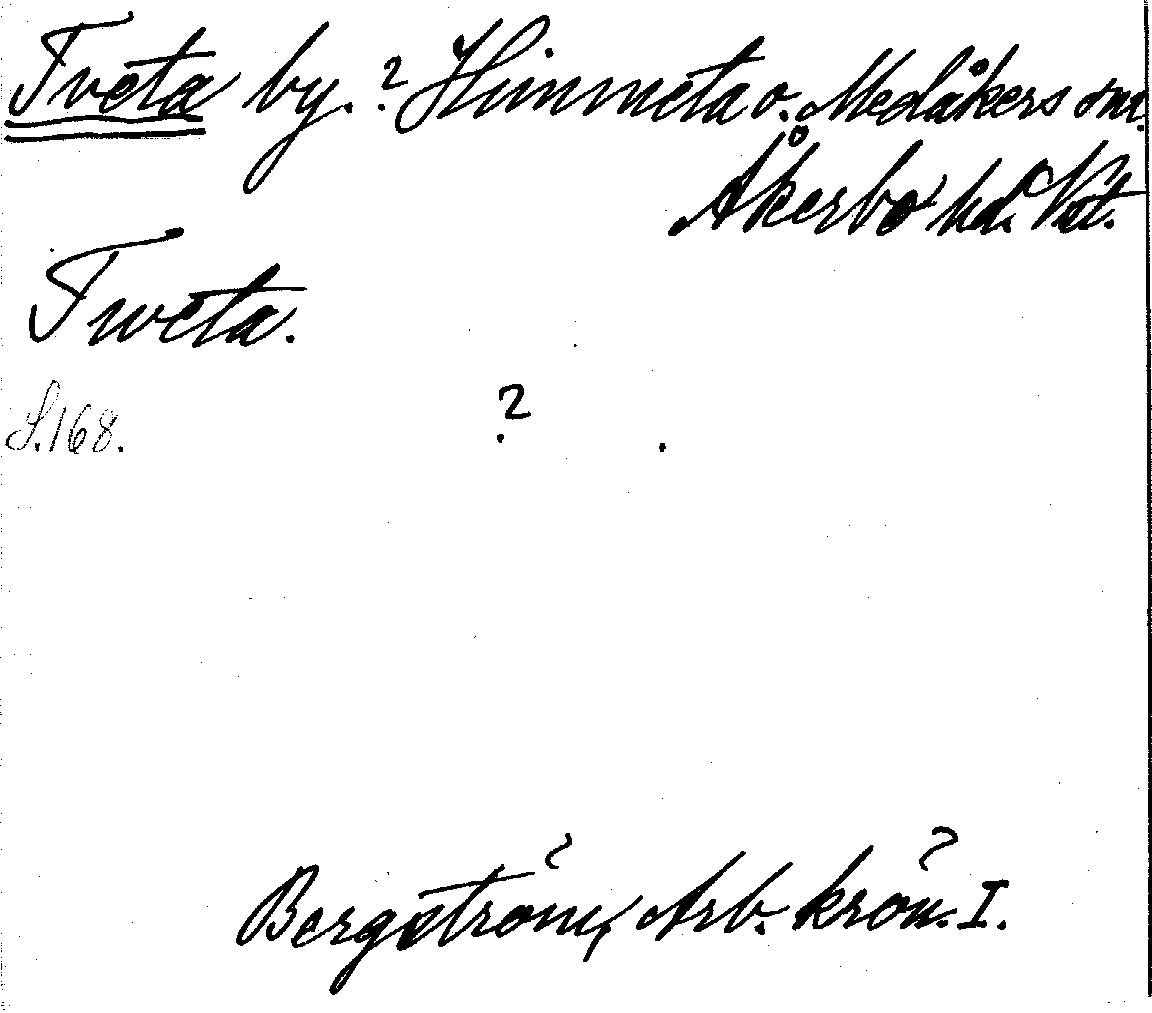 Tveta by. ? Himmeta o. Medåkers snr.
Åkerbo hd. Vst.
Tweta.
S. 168.
?
Bergström, Arb. krön. I.